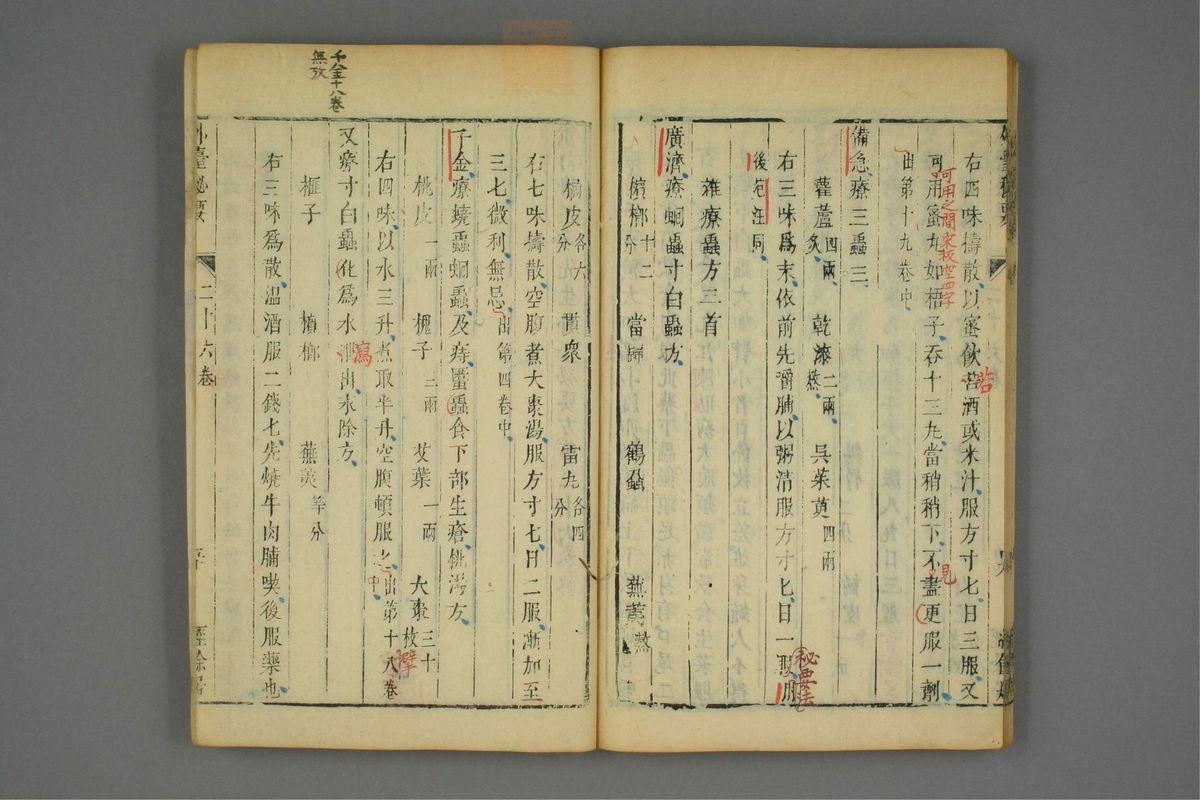 右四味擣散以蜜飲若酒或米汁服方寸匕日三服又
可用蜜丸如梧子吞十三丸當稍稍下不盡更服一劑
出第十九卷中
備急療三蟲三
雚蘆四兩炙 乾漆二兩熬 吳茱萸四兩
右三味爲末依前先嚼脯以粥清服方寸匕日一服
後
雜療蟲方三首
廣濟療蚘蟲寸白蟲方
檳榔十二分 當歸 鶴蝨 蕪荑熬
榧皮各六分 貫衆 雷丸各四分
右七味擣散空腹煮大棗湯服方寸匕日二服漸加至
三匕微利無忌出第四卷中
千金療蟯蟲蚘蟲及痔䘌蟲食下部生瘡桃湯方
桃皮一兩 槐子三兩 艾葉一兩 大棗三十枚
右四味以水三升煮取半升空腹頓服之出第十八卷
又療寸白蟲化爲水出永除方
榧子 檳榔 蕪荑等分
右三味爲散溫酒服二錢匕先燒牛肉脯喫後服藥也
外臺祕要
二十六卷
千金十八卷
無攷
可用之間宋板空四字
若
見
秘要法
瀉
中
擘